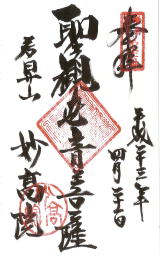 奉拝
平成二十三年
四月
聖観世音菩薩
山
妙高院